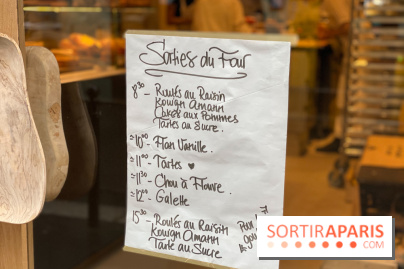 Sorties du Four
8³⁰ - Roulés au Raisin
Kouign Amann
Cakes aux Pommes
Tartes au Sucre.
≃10⁰⁰ - Flan Vanille.
≃11⁰⁰ - Tartes ♥
≃11³⁰ - Chou à Flouve.
≃12⁰⁰ - Galette
15³⁰ - Roulés au Raisin
Kouign Amann
Tarte au Sucre
SORTIRAPARIS
.COM